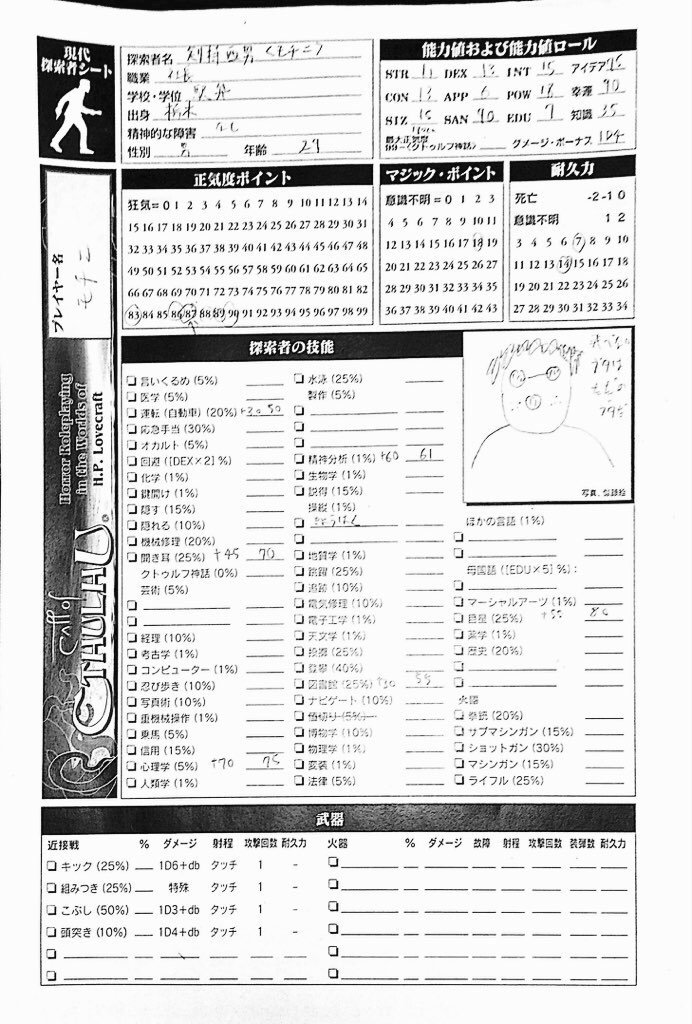 現代
探索者シート
探索者名
職業 社長
学校・学位
出身 栃木
精神的な障害 なし
性別 男 年齢 29
能力値および能力値ロール
STR 11 DEX 13 INT 15 アイデア 75
CON 13 APP 6 POW 18 幸運 90
SIZ 15 SAN 90 EDU 7 知識 35
最大正気度
99-〈クトゥルフ神話〉 ダメージ・ボーナス 1D4
プレイヤー名
モチニ
正気度ポイント
狂気=0 1 2 3 4 5 6 7 8 9 10 11 12 13 14
15 16 17 18 19 20 21 22 23 24 25 26 27 28 29 30 31
32 33 34 35 36 37 38 39 40 41 42 43 44 45 46 47 48
49 50 51 52 53 54 55 56 57 58 59 60 61 62 63 64 65
66 67 68 69 70 71 72 73 74 75 76 77 78 79 80 81 82
83 84 85 86 87 88 89 90 91 92 93 94 95 96 97 98 99
マジック・ポイント
意識不明=0 1 2 3
4 5 6 7 8 9 10 11
12 13 14 15 16 17 18 19
20 21 22 23 24 25 26 27
28 29 30 31 32 33 34 35
36 37 38 39 40 41 42 43
耐久力
死亡 -2 -1 0
意識不明 1 2
3 4 5 6 7 8 9 10
11 12 13 14 15 16 17 18
19 20 21 22 23 24 25 26
27 28 29 30 31 32 33 34
Horror Roleplaying
in the Worlds of
H.P. Lovecraft
Call of
CTHULHU
探索者の技能
言いくるめ (5%)
医学 (5%)
運転 (自動車) (20%) +30 50
応急手当 (30%)
オカルト (5%)
回避 ([DEX×2] %)
化学 (1%)
鍵開け (1%)
隠す (15%)
隠れる (10%)
機械修理 (20%)
聞き耳 (25%) +45 70
クトゥルフ神話 (0%)
芸術 (5%)
経理 (10%)
考古学 (1%)
コンピューター (1%)
忍び歩き (10%)
写真術 (10%)
重機械操作 (1%)
乗馬 (5%)
信用 (15%)
心理学 (5%) +70 75
人類学 (1%)
水泳 (25%)
製作 (5%)
精神分析 (1%) +60 61
生物学 (1%)
説得 (15%)
操縦 (1%)
地質学 (1%)
跳躍 (25%)
追跡 (10%)
電気修理 (10%)
電子工学 (1%)
天文学 (1%)
投擲 (25%)
登攀 (40%)
図書館 (25%) +30 55
ナビゲート (10%)
値切り (5%)
博物学 (10%)
物理学 (1%)
変装 (1%)
法律 (5%)
写真、似顔絵
ほかの言語 (1%)
母国語 ([EDU×5] %) :
マーシャルアーツ (1%)
目星 (25%) +55 80
薬学 (1%)
歴史 (20%)
火器
拳銃 (20%)
サブマシンガン (15%)
ショットガン (30%)
マシンガン (15%)
ライフル (25%)
武器
近接戦 % ダメージ 射程 攻撃回数 耐久力
キック (25%) 1D6+db タッチ 1 -
組みつき (25%) 特殊 タッチ 1 -
こぶし (50%) 1D3+db タッチ 1 -
頭突き (10%) 1D4+db タッチ 1 -
火器 % ダメージ 故障 射程 攻撃回数 装弾数 耐久力